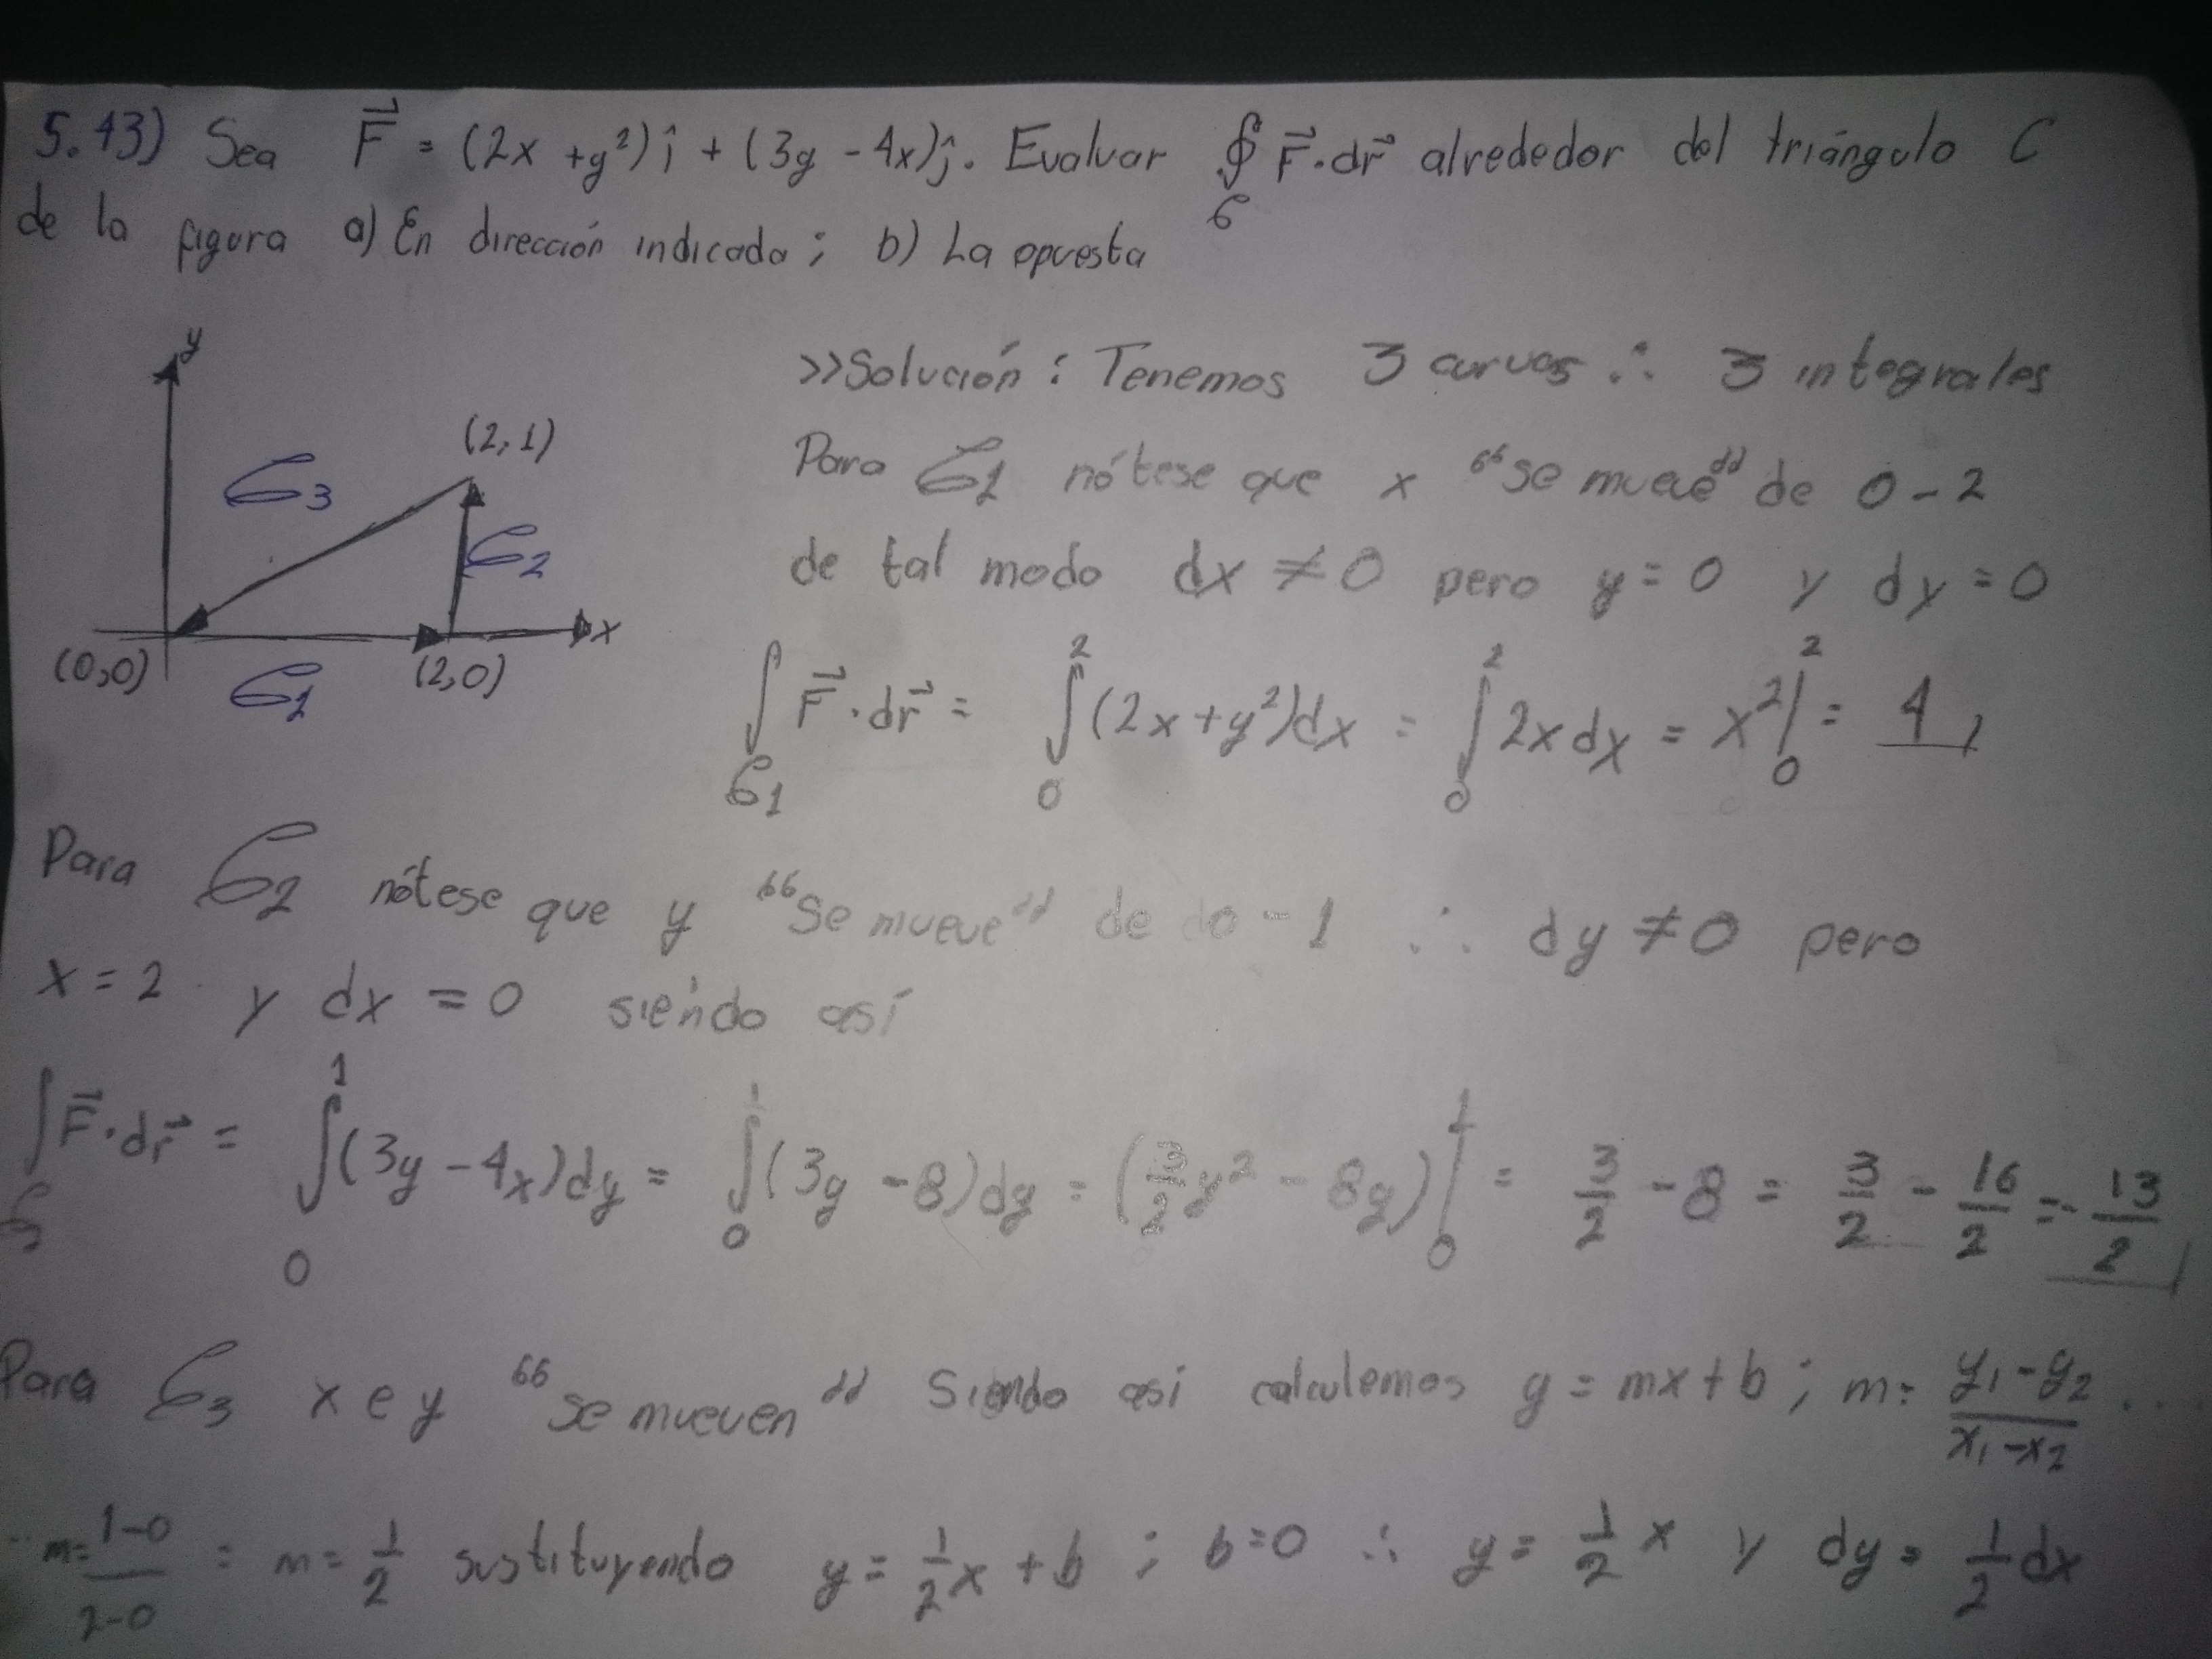 5.43) Sea F⃗ = (2x + y²)î + (3y - 4x)ĵ. Evaluar ∮ F⃗·dr⃗ alrededor del triángulo C
C
de la figura a) En dirección indicada; b) La opuesta
y
(2,1)
C3
C2
x
(0,0)
C1
(2,0)
>>Solución: Tenemos 3 curvas ∴ 3 integrales
Para C1 nótese que x "se mueve" de 0-2
de tal modo dx ≠ 0 pero y = 0 y dy = 0
∫_C1 F⃗·dr⃗ = ∫₀² (2x + y²)dx = ∫₀² 2x dx = x²|₀² = 4
Para C2 nótese que y "Se mueve" de 0-1 ∴ dy ≠ 0 pero
x = 2 y dx = 0 siendo así
∫_C2 F⃗·dr⃗ = ∫₀¹ (3y - 4x)dy = ∫₀¹ (3y - 8)dy = (3/2 y² - 8y)|₀¹ = 3/2 - 8 = 3/2 - 16/2 = -13/2
Para C3 x e y "se mueven" Siendo así calculemos y = mx + b; m = (y₁-y₂)/(x₁-x₂) ...
... m = (1-0)/(2-0) = m = 1/2 sustituyendo y = 1/2 x + b ; b = 0 ∴ y = 1/2 x y dy = 1/2 dx